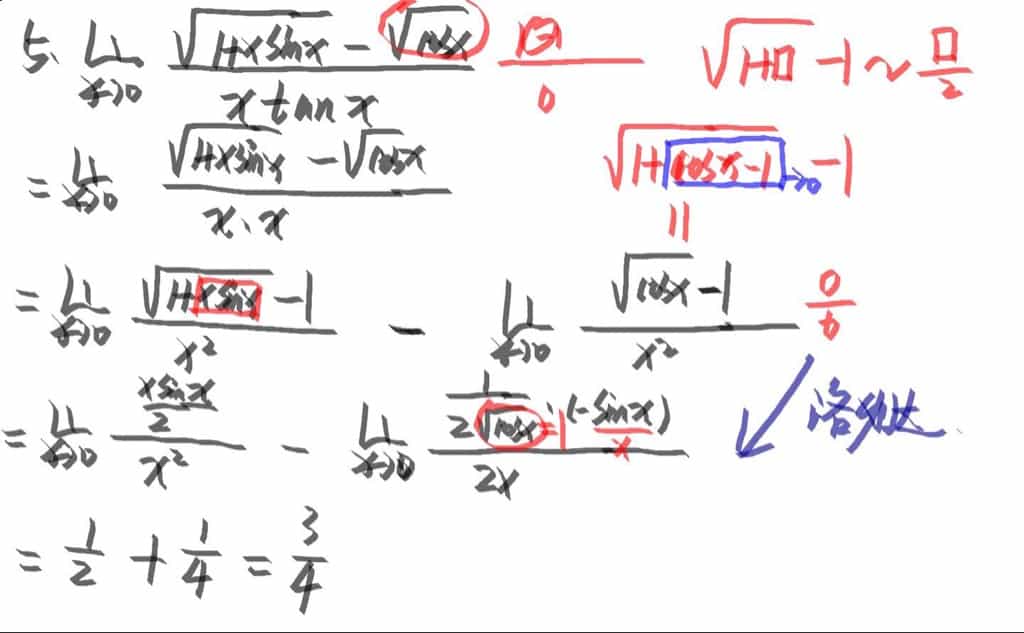 5. lim x→0 (√(1+x sin x) − √cos x) / (x tan x) 1−1 / 0 √(1+□) −1 ~ □/2
= lim x→0 (√(1+x sin x) − √cos x) / (x·x) √(1+cos x−1) −1 →0
||
= lim x→0 (√(1+x sin x) −1) / x² − lim x→0 (√cos x −1) / x² 0/0
= lim x→0 (x sin x / 2) / x² − lim x→0 (1/(2√cos x) · (−sin x)) / 2x =1 x 洛必达
= 1/2 + 1/4 = 3/4